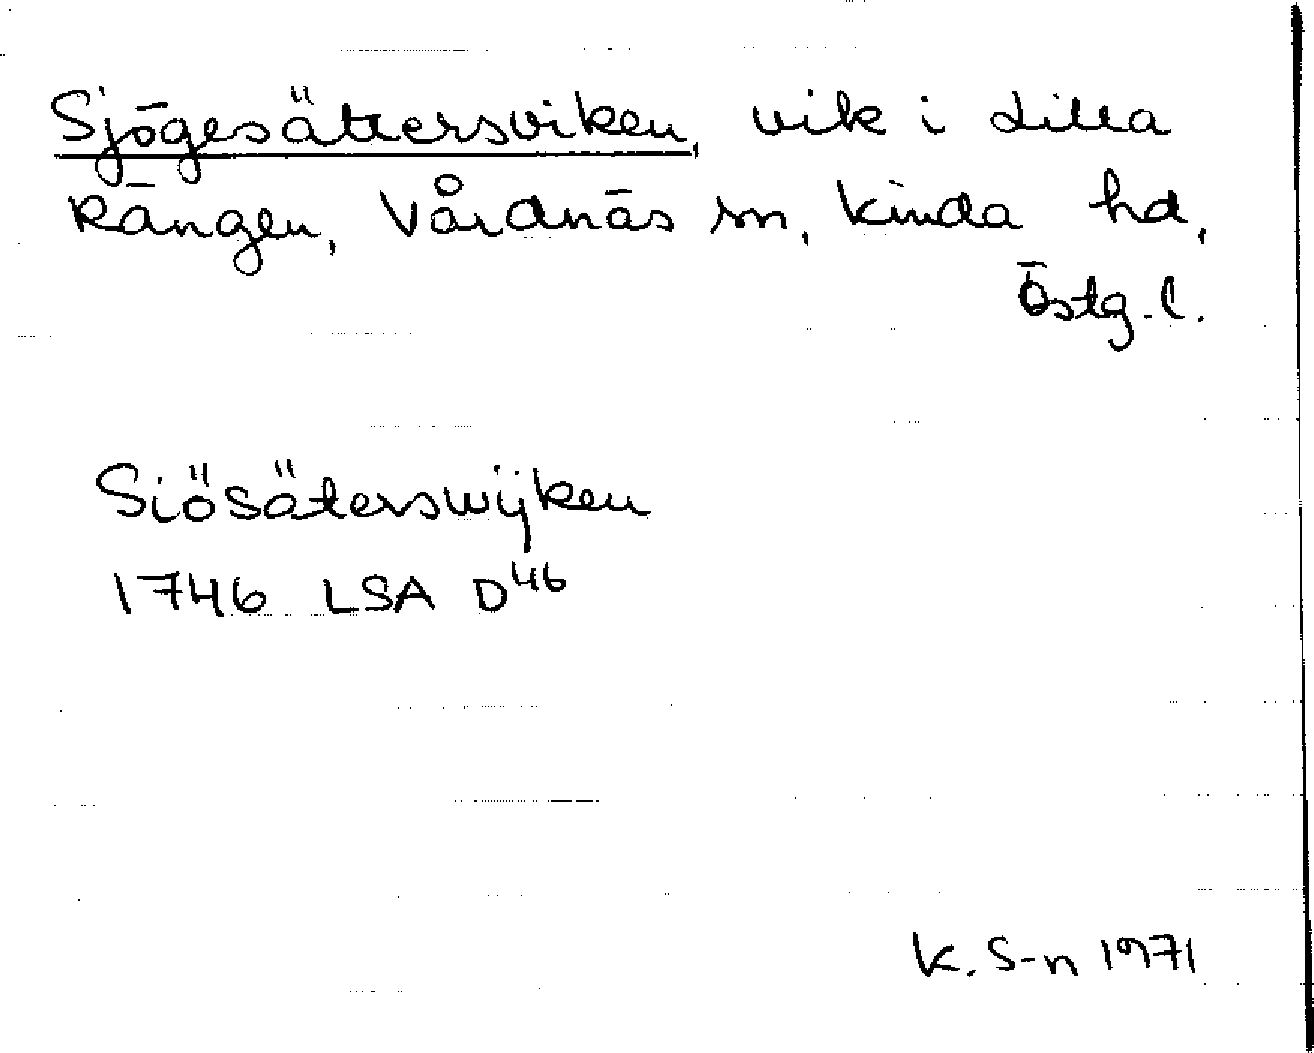 Sjögesättersviken, vik i Lilla
Rängen, Vårdnäs sn, Kinda hd,
Östg. l.
Siösäterswijken
1746 LSA D46
K. S-n 1971